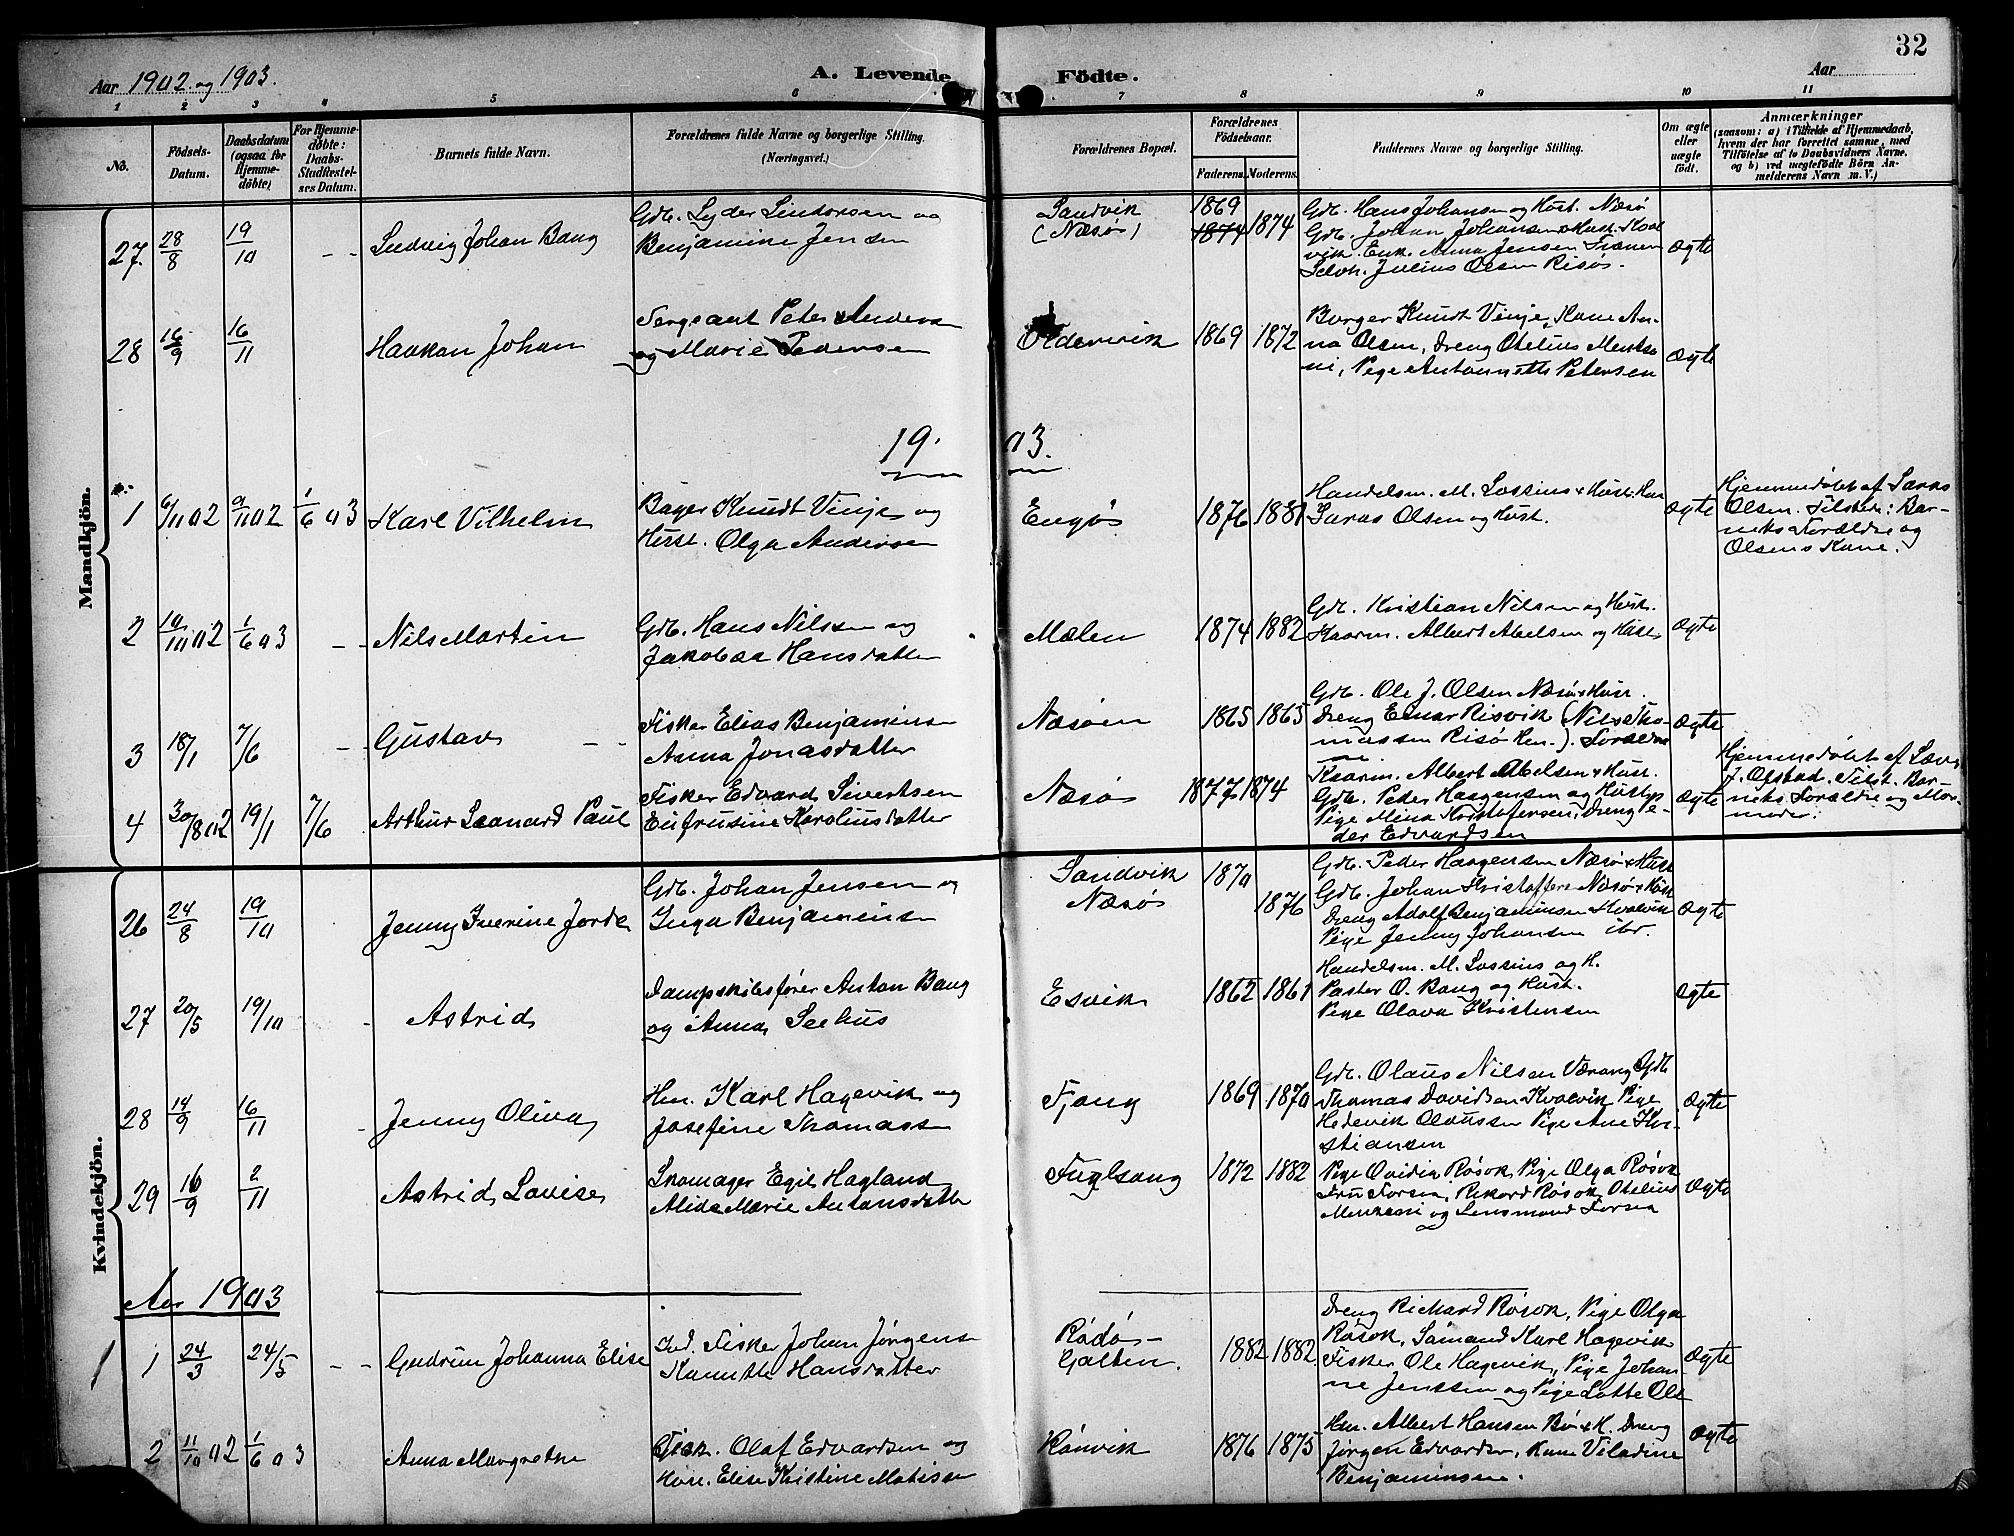 32
Aar 1902 og 1903.
A. Levende Födte.
Aar
1 2 3 4 5 6 7 8 9 10 11
No.
Födsels-Datum.
Daabsdatum (ogsaa for Hjemme-döbte)
For Hjemme-döbte: Daabs-Stadfæstel-ses Datum.
Barnets fulde Navn.
Forældrenes fulde Navne og borgerlige Stilling. (Næringsvei.)
Forældrenes Bopæl.
Forældrenes Födselsaar.
Faderens. Moderens.
Faddernes Navne og borgerlige Stilling.
Om ægte eller uægte födt.
Anmærkninger
(saasom: a) i Tilfælde af Hjemmedaab, hvem der har forrettet samme, med Tilföielse af to Daabsvidners Navne. og b) ved uægtefödte Börn An-melderens Navn m. V.)
Mandkjön.
27. 28/8 19/10 - - Ludvig Johan Bang
Gdb. Lyder Lindorsen og
Benjamine Jensen
Sandvik
(Næsø)
1869
1874 1874
Gdb. Hans Johansen og Hust. Næsø
Gdb. Johan Johansen & Hust. Kval
vik. Enk. Anna Jensen Tranen
Selvh. Julius Olsen Risøs.
ægte
28 16/9 16/11 Haakan Johan
Sergeant Peter Anders
og Marie Pedersen
Oldervik 1869 1872
Borger Knudt Vinje, Kone An-
na Olsen, Dreng Otelius Mentzo
ni, Pige Antonneth Petersen
ægte
19. 03.
1 6/11 02 9/11 02 1/6 03 Karl Vilhelm
Bager Knudt Vinje og
Hust. Olga Andersen
Engøs 1876 1881
Handelsm. M. Lossius & Hust.
Saras Olsen og Hust.
ægte
Hjemmedøbt af Saras
Olsen. Tilstede: Bar-
nets Forældre og
Olsens Kone.
2 10/10 02 1/6 03 - - Nils Martin
Gdb. Hans Nilssen og
Jakobea Hansdatter
Mælen 1874 1882
Gdb. Kristian Nilsen og Hust.
Kaarm. Albert Abelsen og Hust
ægte
3 18/1 7/6 - - Gustav - -
Fisker Elias Benjaminse
Anna Jonasdatter
Næsøen 1865 1865
Gdb. Ole J. Olsen Næsø & Hust.
Dreng Einar Risvik (Nils Tho-
massen Risø Hm.). Forældre
ne
ægte
4 30/8 02 19/1 7/6 Arthur Leonard Paul
Fisker Edvard Sivertsen
Eufrusine Karoliusdatter
Næsø 1877 1874
Kaarm. Albert Abelsen & Hust.
Gdb. Peter Haagensen og Hust
Pige Mina Kristofersen, Dreng Pe-
der Edvardsen
ægte
Hjemmedøbt af Lærer
J. Opstad. Tilst. Bar-
nets Forældre og Mor-
moder.
Kvindekjön.
26 24/8 19/10 Jenny Iverine Jorde
Gdb. Johan Jensen og
Inga Benjaminse
Sandvik
Næsø
1870
1876
Gdb. Peder Haagensen Næsø & Hust
Gdb. Johan Kristoffers Næsø & Hust
Dreng Adolf Benjaminsen Kvalvik
Pige Jenny Johansen ibr.
ægte
27 20/5 19/10 - Astrid
Dampskibsfører Anton Bang
og Anna Seehus
Esvik 1862 1861
Handelsm. M. Lossius og H.
Pastor O. Bang og Hust.
Pige Olava Kristensen
ægte
28 14/9 16/11 - Jenny Oliva
Hm. Karl Hagevik og
Josefine Thomass
Fjong 1869 1870
Gdb. Olaus Nilsen Værang Gdb
Thomas Davidsen Kvalvik Pige
Hedevik Olaussen Pige Ane Kri-
stiansen
ægte
29 16/9 2/11 Astrid Lovise
Skomager Egil Hagland
Alida Marie Antonsdatte
Fuglsang 1872 1882
Pige Ovidia Røsok, Pige Olga Røsok
Fru Forsea, Rikard Røsok, Otelius
Mentzoni og Lensmand Forsea
ægte
Aar 1903
1 1 24/3 24/5 - - Gudrun Johanna Elise
Ind. Fisker Johan Jørgense
Kanutte Hansdatter
Rødøs-
Galten.
1882 1882
Dreng Richard Røsok, Pige Olga
Røsok, Sømand Karl Hagevik
Fisker Ole Hagevik, Pige Johan
ne Jenssen og Pige Lotte Ols
ægte
2 11/10 02 1/6 03 Anna Margrethe
Gjæk. Olaf Edvardsen og
Hust. Elise Kristine Mathisse
Rønvik 1876 1875
Hm. Albert Hansen Bø & H. Dreng
Jørgen Edvardsen, Kone Viladine
Benjaminsen.
ægte